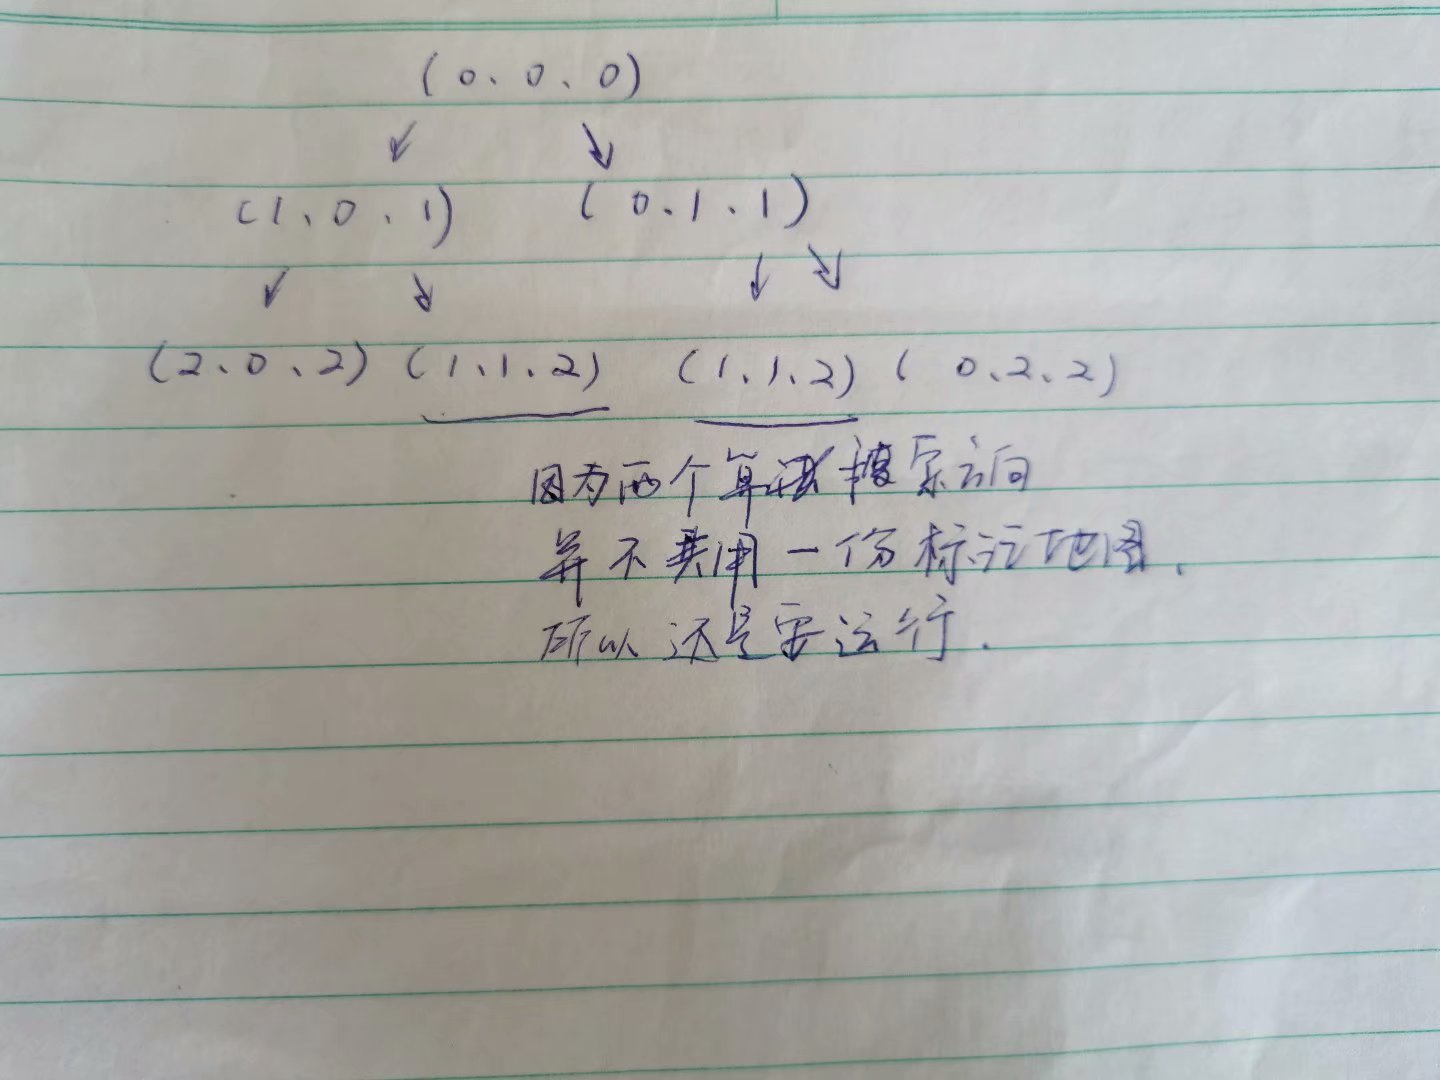 (0、0、0)
(1、0、1) (0、1、1)
(2、0、2) (1、1、2) (1、1、2) (0、2、2)
因为两个算法搜索方向
并不共用一份标记地图、
所以还是要运行.